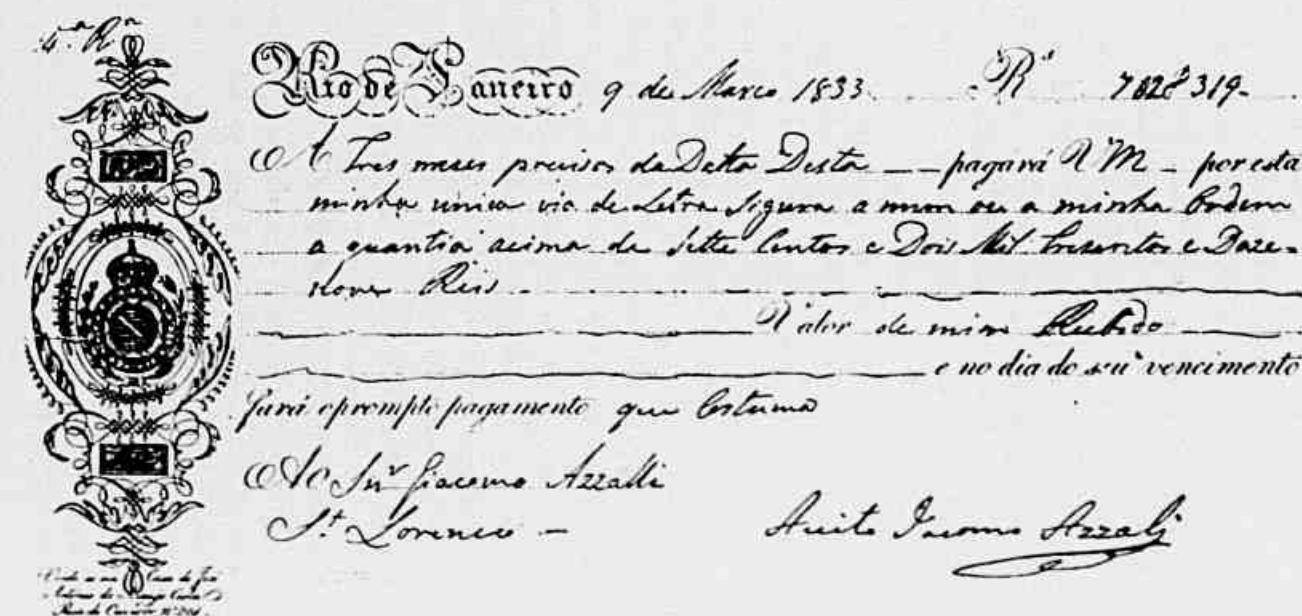 4.ª Rª
Rio de Janeiro 9 de Marco 1833 Rˢ 702$319-
A Tres meses precisos da Data Desta pagará VM por esta
minha unica via de Letra Segura a mim ou a minha Ordem
a quantia acima de Sette Centos e Dois Mil Tresentos e Daze-
nove Reis
Valor de mim Recibido
e no dia do seu vencimento
fará o prompto pagamento que Costuma
Ao Snr Giacomo Azzalli
St. Lorenco -
Aceito Jacomo Azzalj
Vende se na Casa de José
Antonio de Costa
Rua do Ouvidor Nº